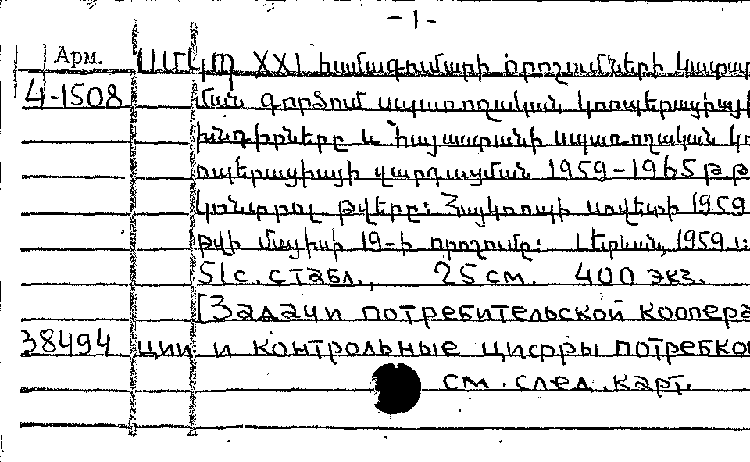 -1-
Арм. ՍՄԿՊ XXI համագումարի որոշումների կատար
4-1508 ման գործում սպառողական կոոպերացիայի
խնդիրները և Հայաստանի սպառողական կո
ոպերացիայի զարգացման 1959-1965 թթ
կոնտրոլ թվերը: Հայկոոպի սովետի 1959
թվի մայիսի 19-ի որոշումը: Երևան, 1959 թ.
51с. с табл., 25 см. 400 экз.
[Задачи потребительской коопера
38494 ции и контрольные цифры потребко
см. след. карт.